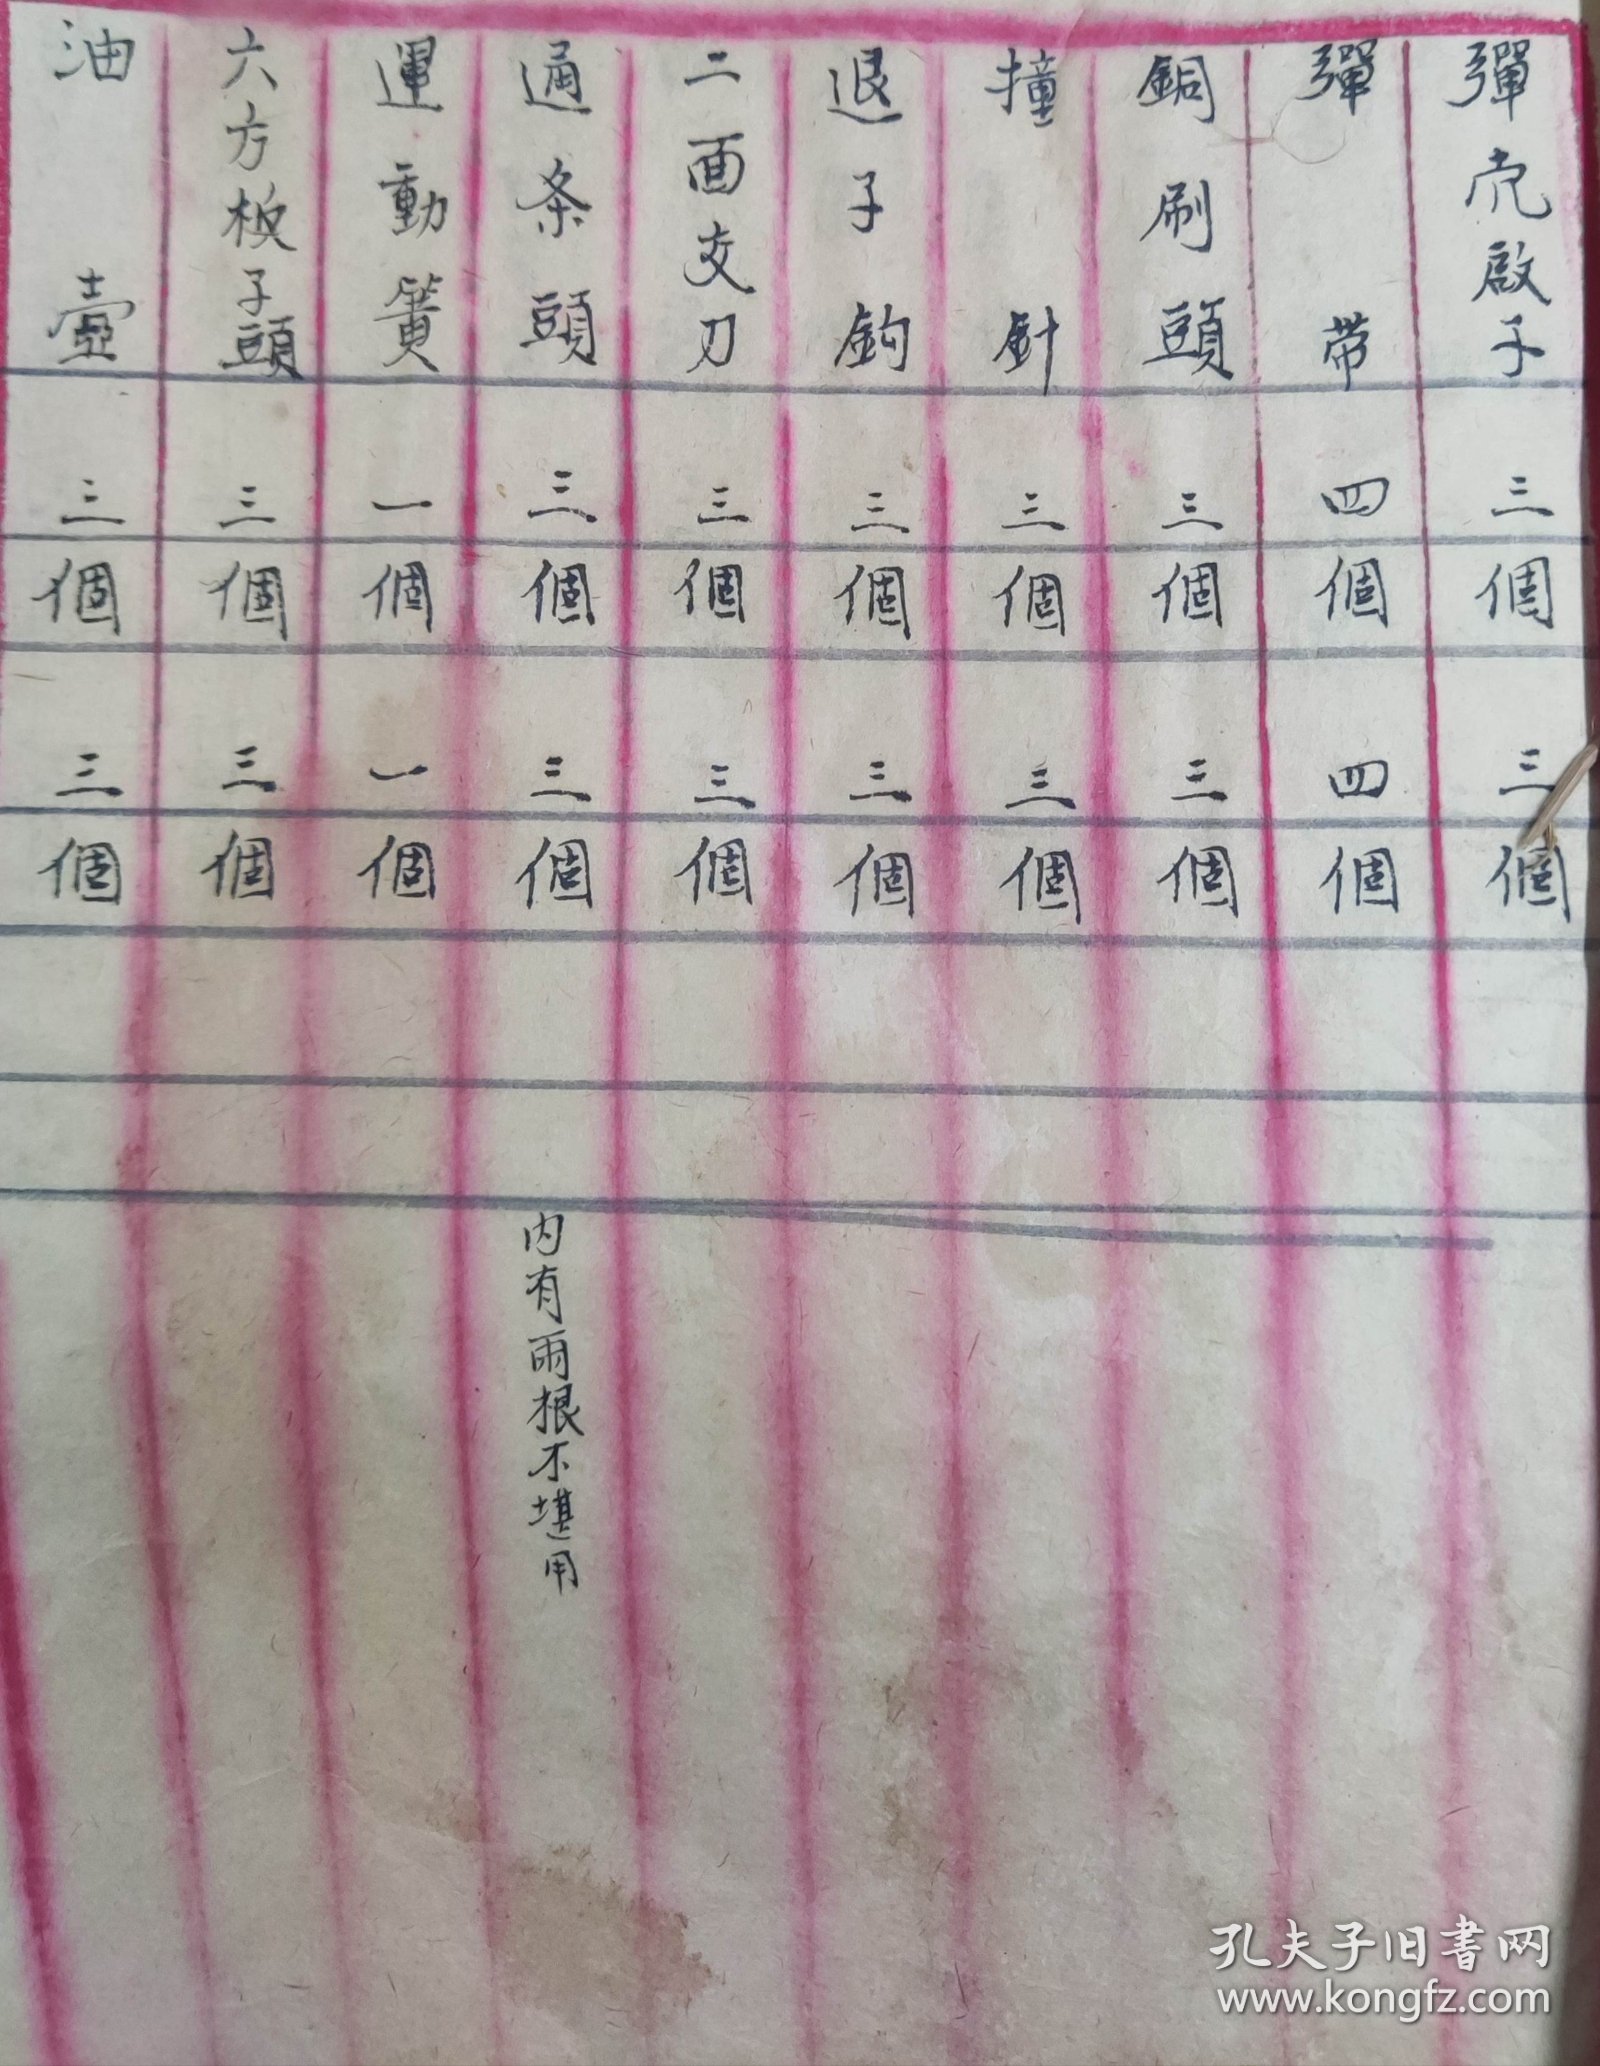 彈壳啟子 三個 三個
彈帶 四個 四個
銅刷頭 三個 三個
撞針 三個 三個
退子鈎 三個 三個
二面交刀 三個 三個
通条頭 三個 三個 内有兩根不堪用
運動簧 一個 一個
六方板子頭 三個 三個
油壺 三個 三個
孔夫子旧书网
www.kongfz.com